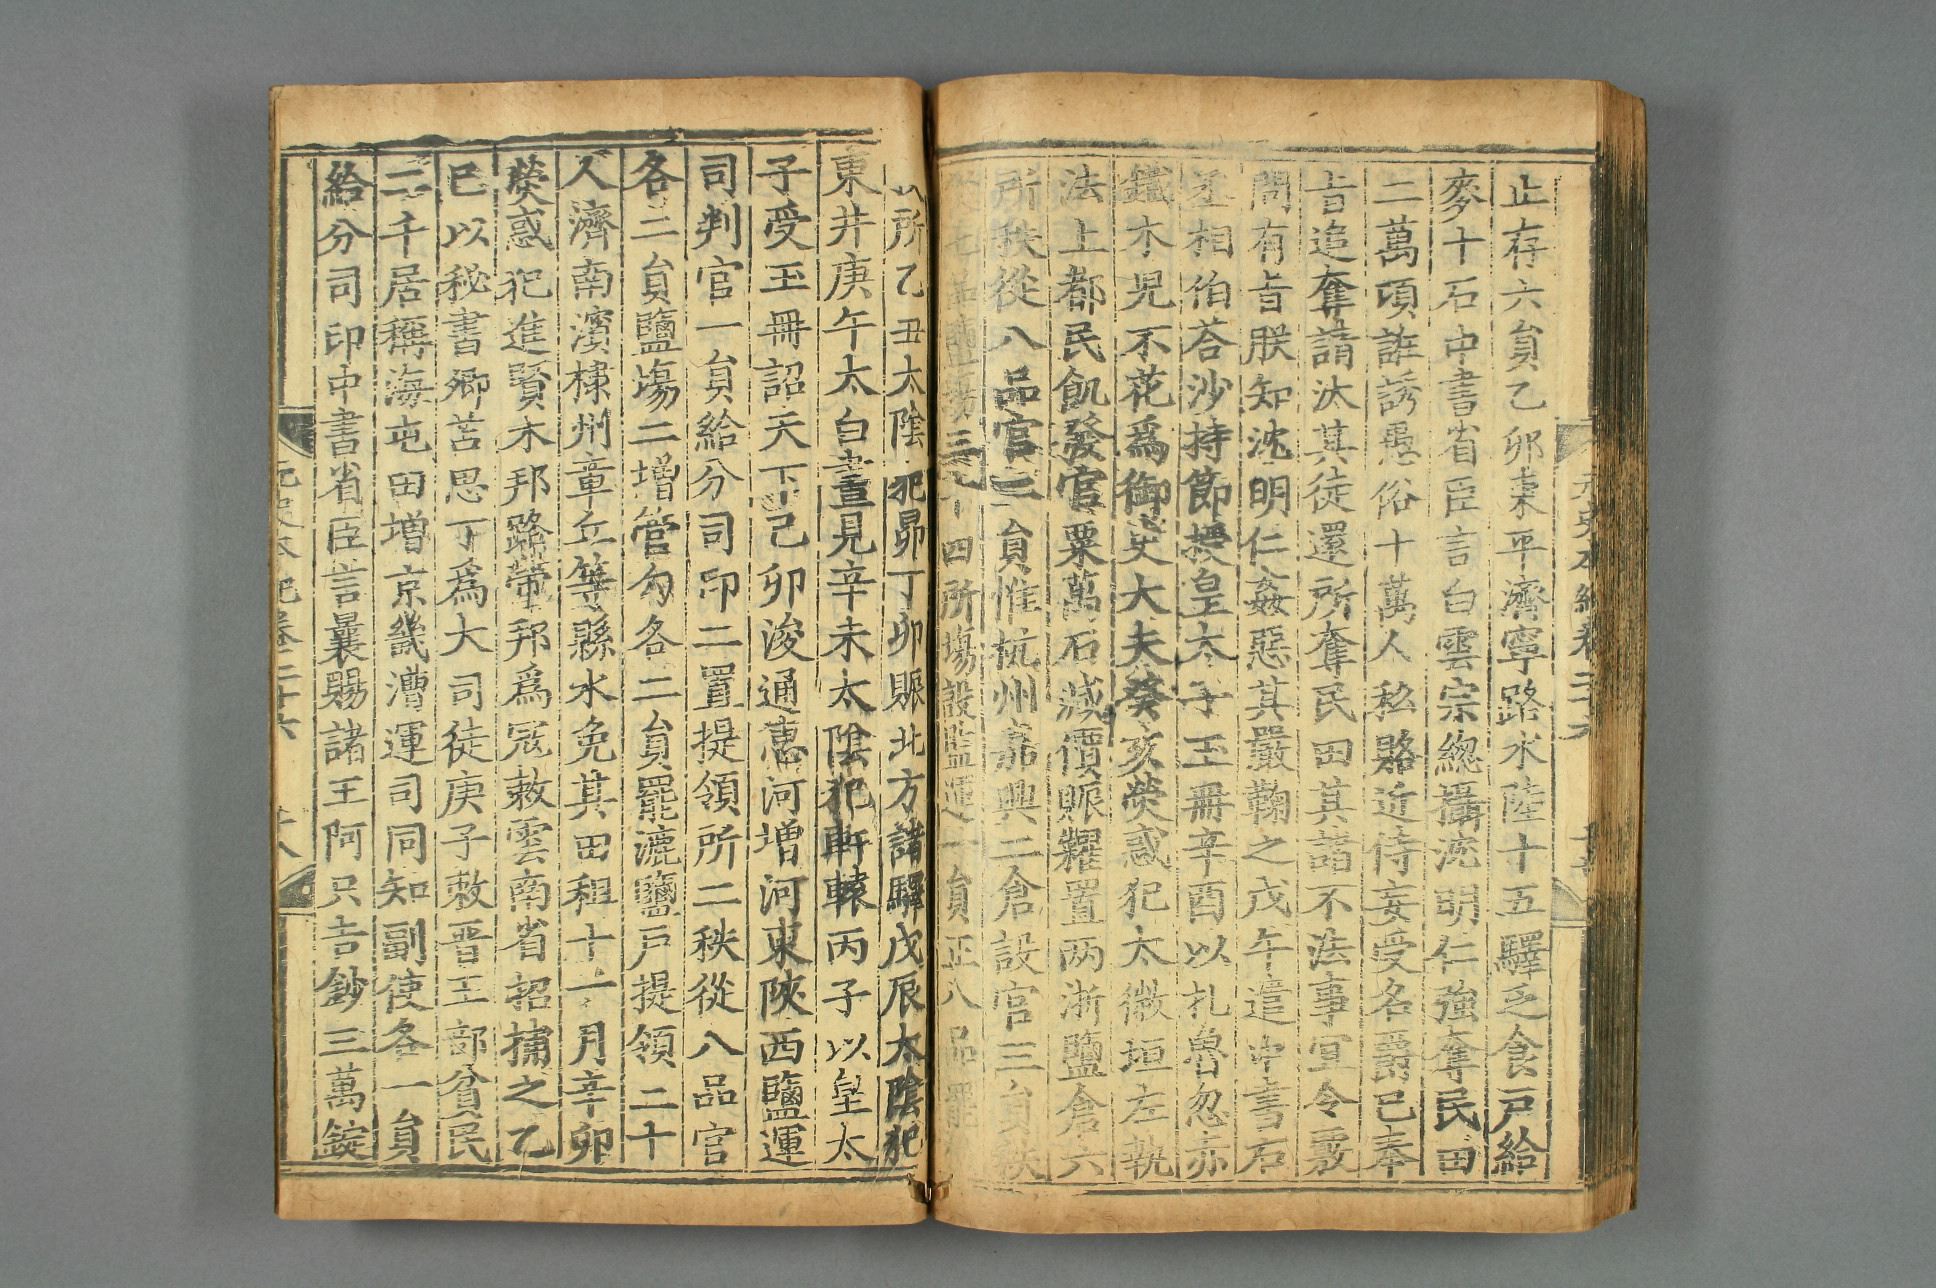 止存六員乙卯棗平濟寧路水陸十五驛乏食户給
麥十石中書省臣言白雲宗緫攝沈明仁強奪民田
二萬頃誑誘愚俗十萬人私賂近侍妄受名爵已奉
旨追奪請汰其徒還所奪民田其諸不法事宜令覈
問有旨朕知沈明仁姦惡其嚴鞫之戊午遣中書右
丞相伯荅沙持節授皇太子玉冊辛酉以扎魯忽赤
鐵木児不花爲御史大夫癸亥熒惑犯太微垣左執
法上都民飢發官粟萬石減價賑糶置两浙鹽倉六
所秩從八品官二員惟杭州嘉興二倉設官三員秩
從七品鹽場三十四所場設監運一員正八品罷
所乙丑太陰犯昴丁卯賑北方諸驛戊辰太陰犯
東井庚午太白晝見辛未太陰犯軒轅丙子以皇太
子受玉冊詔天下己卯浚通惠河增河東陝西鹽運
司判官一員給分司印二置提領所二秩從八品官
各二員鹽塲二增管勾各二員罷漉鹽户提領二十
人濟南濱棣州章丘等縣水免其田租十一月辛卯
熒惑犯進賢木邦路帶邦爲冦敕雲南省招捕之乙
巳以秘書卿苫思丁爲大司徒庚子敕晋王部貧民
二千居稱海屯田增京畿漕運司同知副使各一員
給分司印中書省臣言曩賜諸王阿只吉鈔三萬錠
元史本紀卷二十六 十八